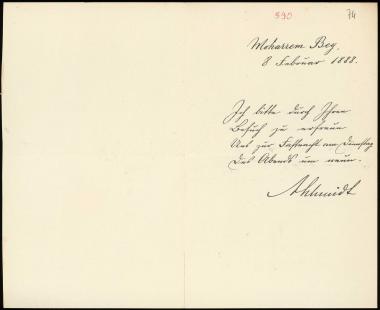 590 74
Moharrem Bey.
8 Februar 1888.
Ich bitte durch Ihren
Besuch zu erfreun
Uns zur Fastnacht am Dienstag
Des Abends um neun.
ASchmidt